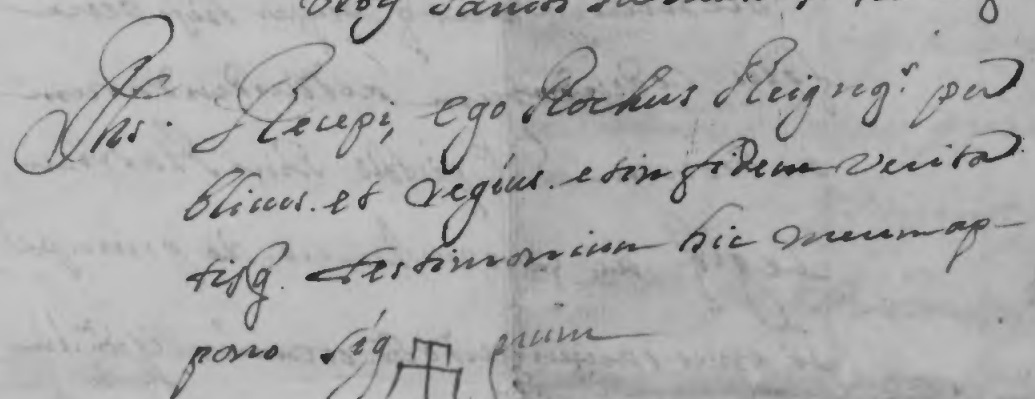 Jhs. Recepi, ego Rochus Reig nots. pu
blicus. et regius. et in fidem verita
tisq. testimonium hic meum ap-
pono sig num